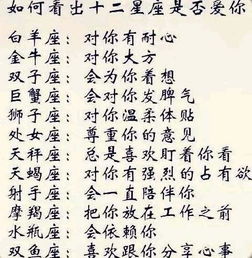 如何看出十二星座是否爱你
白羊座：对你有耐心
金牛座：对你大方
双子座：会为你着想
巨蟹座：会对你发脾气
狮子座：对你温柔体贴
处女座：尊重你的意见
天秤座：总是喜欢盯着你看
天蝎座：对你有强烈的占有欲
射手座：会一直陪伴你
摩羯座：把你放在工作之前
水瓶座：会依赖你
双鱼座：喜欢跟你分享心事